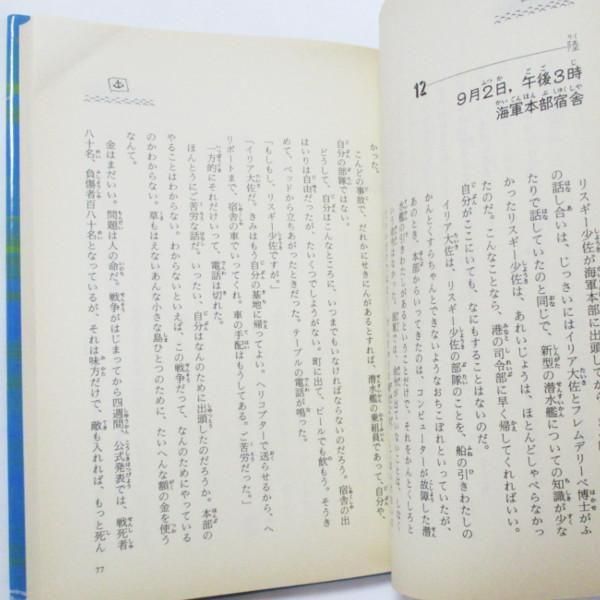 陸
12
9月2日，午後3時
海軍本部宿舎
リスギー少佐が海軍本部に出頭して
の話し合いは、じっさいにはイリア大佐とフレムデリーベ博士がふ
たりで話していたのと同じで、新型の潜水艦についての知識が少な
かったリスギー少佐は、あれいじょうは、ほとんどしゃべらなかっ
たのだ。こんなことなら、港の司令部に早く帰してくれればいい。
自分がここにいても、なにもすることはないのだ。
イリア大佐は、リスギー少佐の部隊のことを、船の引きわたしの
かんとくすらちゃんとできないようなおちこぼれといっていたが、
あのとき、本部からいってきたのは、コンピューターが故障した潜
水艦の引きわたしがあるということだけで、それをかんとくしろと
かった。
こんどの事故で、だれかにせきにんがあるとすれば、潜水艦の乗組員であって、自分や、
自分の部隊ではない。
どうして、自分はこんなところに、いつまでもいなければならないのだろう。宿舎の出
はいりは自由だったが、たいくつでしようがない。町に出て、ビールでも飲もう。そうき
めて、ベッドから立ちあがったときだった。テーブルの電話が鳴った。
「もしもし、リスギー少佐ですが。」
「イリア大佐だ。きみはもう自分の基地に帰ってよい。ヘリコプターで送らせるから、ヘ
リポートまで、宿舎の車でいってくれ。車の手配はもうしてある。ご苦労だった。」
一方的にそれだけいって、電話は切れた。
ほんとうにご苦労な話だ。いったい、自分はなんのために出頭したのだろうか。本部の
やることはわからない。わからないといえば、この戦争だって、なんのためにやっている
のかわからない。草もはえないあんな小さな島ひとつのために、たいへんな額の金を使う
なんて。
金はまだいい。問題は人の命だ。戦争がはじまってから四週間、公式発表では、戦死者
八十名、負傷者百八十名となっているが、それは味方だけで、敵も入れれば、もっと死ん
77